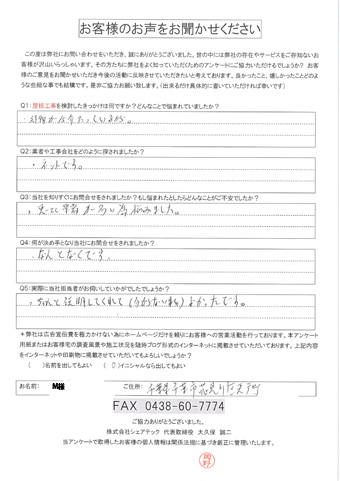 お客様のお声をお聞かせください
この度は弊社にお問い合わせをいただき、誠にありがとうございました。世の中には弊社の存在やサービスをご存知ないお
客様が沢山いらっしゃいます。その方たちに弊社をよく知っていただくためのアンケートにご協力いただけるでしょうか？ お客
様のご意見をお聞かせいただき今後の活動に反映させていただきたいと考えております。良かったこと、嬉しかったことどのよ
うな些細な事でも結構です。是非ご協力お願い致します。（出来るだけ具体的に書いていただければ幸いです）
Q1：屋根工事を検討したきっかけは何ですか？どんなことで悩まれていましたか？
Q2：業者や工事会社をどのように探されましたか？
・ネットです。
Q3：当社を知りすぐにお問合せをされましたか？もし悩まれたとしたらどんなことがご不安でしたか？
業者が多い為 悩みました。
Q4：何が決め手となり当社にお問合せをされましたか？
なんとなくです
Q5：実際に当社担当者がお伺いしていかがでしたでしょうか？
ちゃんと説明してくれて（分からない事）よかったです。
＊弊社は広告宣伝費を極力かけない為にホームページだけを頼りにお客様への営業活動を行っております。本アンケート
用紙またはお客様宅の調査風景や施工状況を随時ブログ形式のインターネットに掲載させていただいております。上記内容
をインターネットや印刷物に掲載させていただいてもよろしいでしょうか？
（ ）名前を出してもよい （○）イニシャルなら出してもよい
お名前： M様 ご住所： 千葉県千葉市花見川区
FAX 0438-60-7774
ご協力ありがとうございました。
株式会社シェアテック 代表取締役 大久保 誠二
当アンケートで取得したお客様の個人情報は関係法規に基づき厳正に管理いたします。
岡野